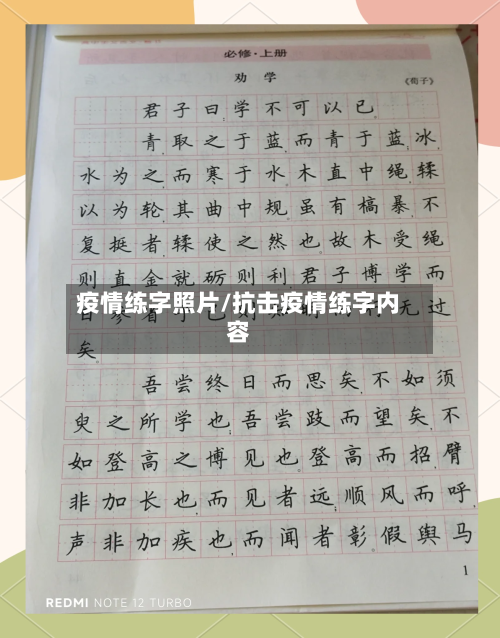 必修·上册
劝 学
《荀子》
君子曰:学不可以已。
青,取之于蓝,而青于蓝;冰,
水为之,而寒于水。木直中绳,𫐓
以为轮,其曲中规。虽有槁暴,不
复挺者,𫐓使之然也。故木受绳
则直,金就砺则利,君子博学而
疫情练字照片/抗击疫情练字内
容
日参省乎己,则知明而行无过
矣。
吾尝终日而思矣,不如须
臾之所学也;吾尝跂而望矣,不
如登高之博见也。登高而招,臂
非加长也,而见者远;顺风而呼,
声非加疾也,而闻者彰。假舆马
1
REDMI NOTE 12 TURBO